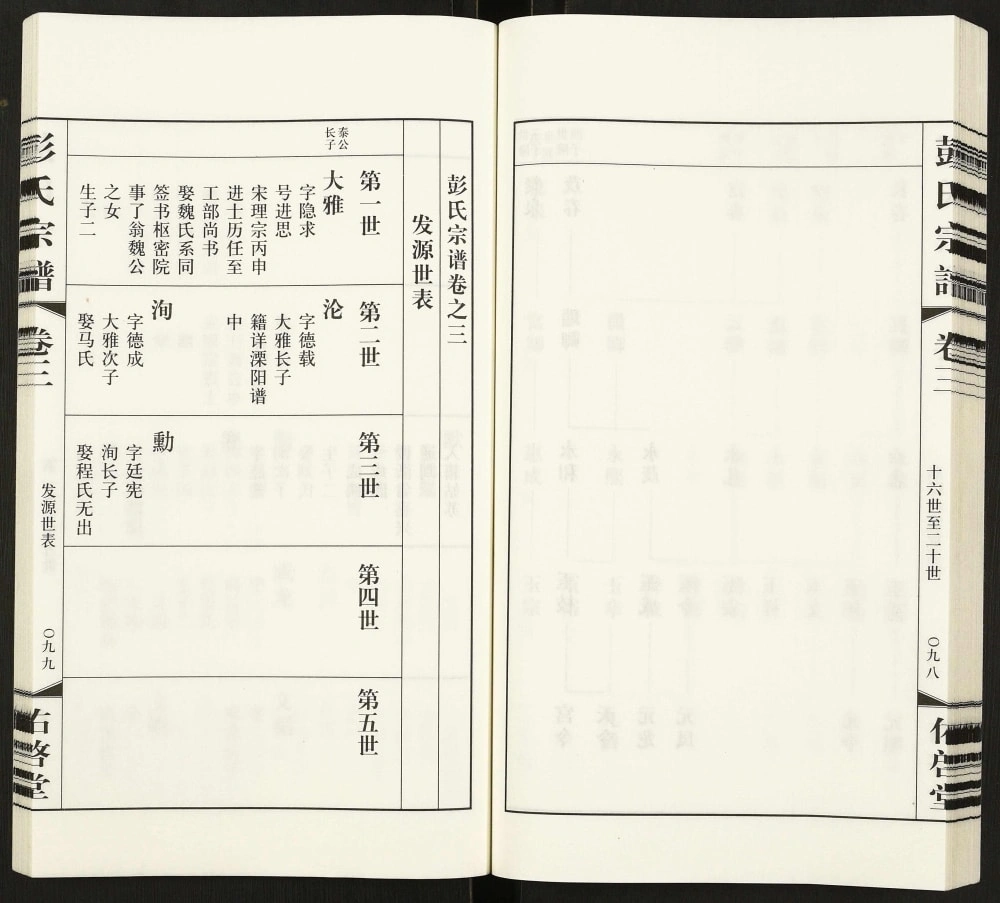 彭氏宗谱
卷三
十六世至二十世
〇九八
佑啓堂
彭氏宗谱卷之三
发源世表
第一世
泰公
长子
大雅
字隐求
号进思
宋理宗丙申
进士历任至
工部尚书
娶魏氏系同
签书枢密院
事了翁魏公
之女
生子二
第二世
沦
字德载
大雅长子
籍详溧阳谱
中
洵
字德成
大雅次子
娶马氏
第三世
勳
字廷宪
洵长子
娶程氏无出
第四世
第五世
彭氏宗谱
卷三
发源世表
〇九九
佑啓堂